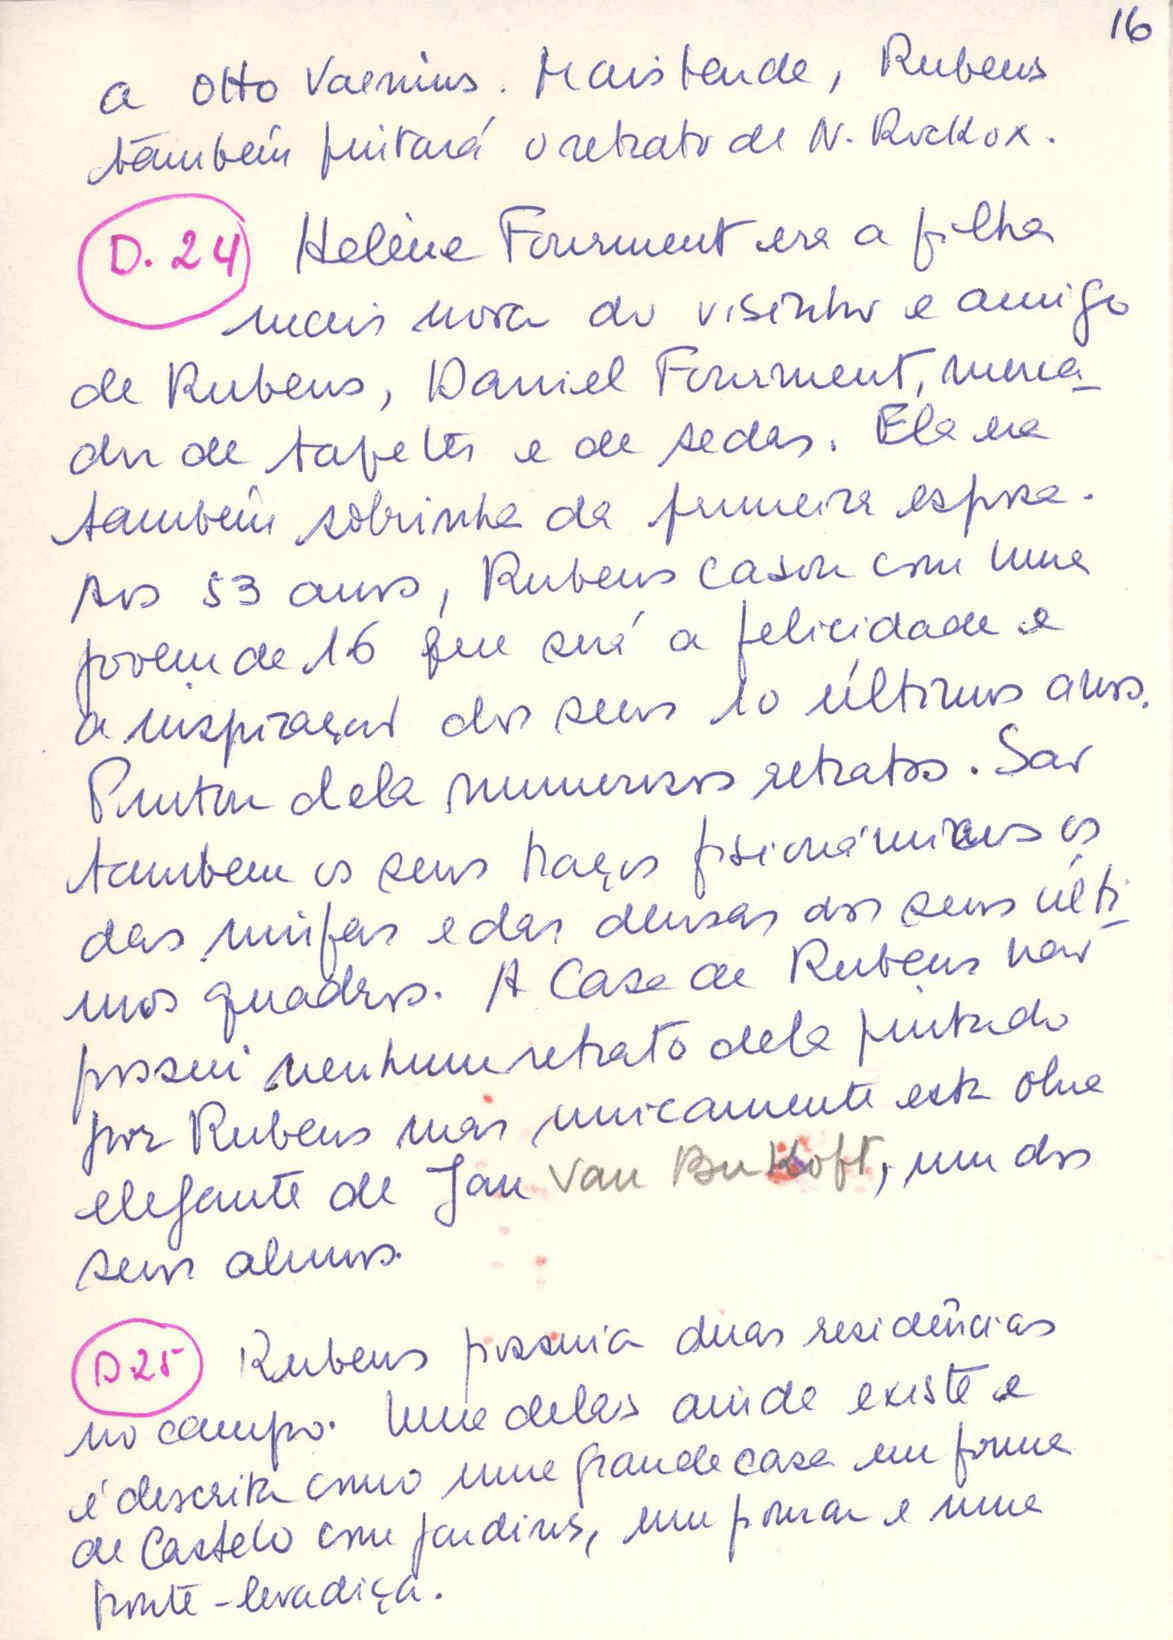 16
a Otto Vaenius. Mais tarde, Rubens
também pintará o retrato de N. Rockox.
D. 24 Helène Fourment era a filha
mais nova do visinho e amigo
de Rubens, Daniel Fourment, merca-
dor de tapetes e de sedas. Ela era
também sobrinha da primeira esposa.
Aos 53 anos, Rubens casou com uma
jovem de 16 que será a felicidade e
a inspiração dos seus 10 últimos anos.
Pintou dela numerosos retratos. São
tambem os seus traços fisionómicos os
das ninfas e das deusas dos seus últi-
mos quadros. A Casa de Rubens não
possui nenhum retrato dela pintado
por Rubens mas unicamente esta obra
elegante de Jan Van Bukhoft, um dos
seus alunos.
D25 Rubens possuia duas residências
no campo. Uma delas ainda existe e
é descrita como uma grande casa em forma
de Castelo com jardins, um pomar e uma
ponte-levadiça.